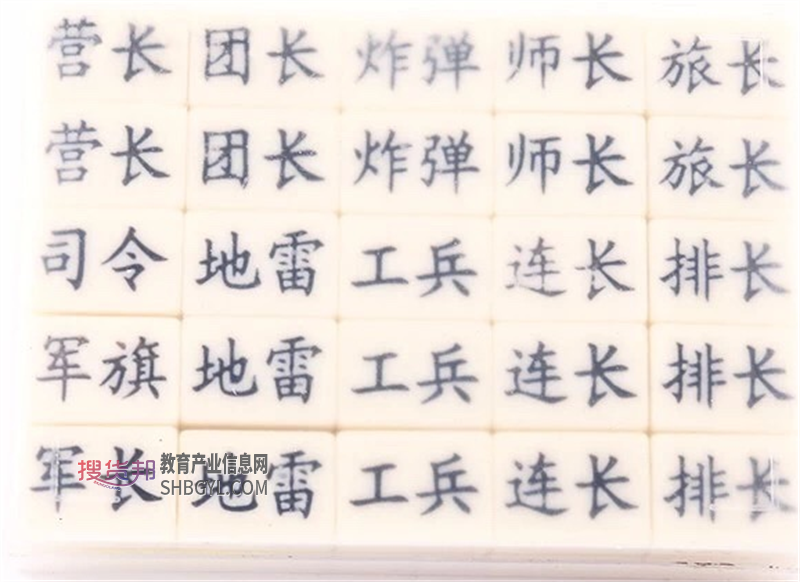 营长 团长 炸弹 师长 旅长
营长 团长 炸弹 师长 旅长
司令 地雷 工兵 连长 排长
军旗 地雷 工兵 连长 排长
军长 地雷 工兵 连长 排长
搜货邦 教育产业信息网
SHBGYL.COM